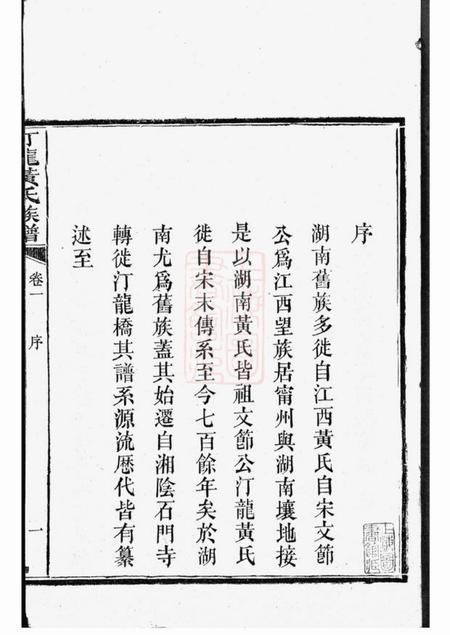 序
湖南舊族多徙自江西黃氏自宋文節
公爲江西望族居甯州與湖南壤地接
是以湖南黃氏皆祖文節公汀龍黃氏
徙自宋末傳系至今七百餘年矣於湖
南尤爲舊族蓋其始遷自湘陰石門寺
轉徙汀龍橋其譜系源流歷代皆有纂
述至
汀龍黃氏族譜
卷一
序
一